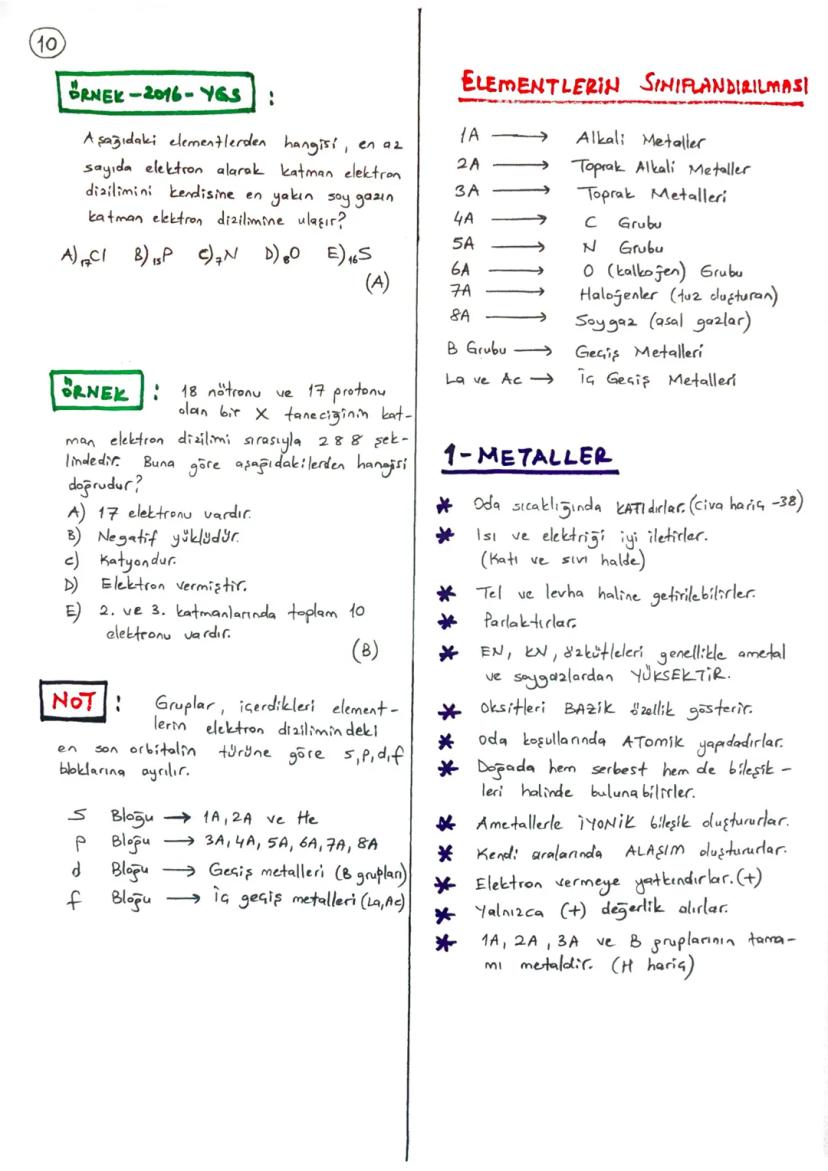 10
ÖRNEK-2016-YGS :
Aşağıdaki elementlerden hangisi, en az
sayıda elektron alarak katman elektron
dizilimini kendisine en yakın soy gazın
katman elektron dizilimine ulaşır?
A) ₁₇Cl B) ₁₅P C) ₇N D) ₈O E) ₁₆S
(A)
ÖRNEK : 18 nötronu ve 17 protonu
olan bir X taneciğinin kat-
man elektron dizilimi sırasıyla 2 8 8 şek-
lindedir. Buna göre aşağıdakilerden hangisi
doğrudur?
A) 17 elektronu vardır.
B) Negatif yüklüdür.
C) Katyondur.
D) Elektron vermiştir.
E) 2. ve 3. katmanlarında toplam 10
elektronu vardır.
(B)
NOT : Gruplar, içerdikleri element-
lerin elektron dizilimindeki
en son orbitalin türüne göre s,p,d,f
bloklarına ayrılır.
S Bloğu → 1A, 2A ve He
P Bloğu → 3A, 4A, 5A, 6A, 7A, 8A
d Bloğu → Geçiş metalleri (B grupları)
f Bloğu → İç geçiş metalleri (La, Ac)
ELEMENTLERİN SINIFLANDIRILMASI
1A → Alkali Metaller
2A → Toprak Alkali Metaller
3A → Toprak Metalleri
4A → C Grubu
5A → N Grubu
6A → O (kalkojen) Grubu
7A → Halojenler (tuz oluşturan)
8A → Soygaz (asal gazlar)
B Grubu → Geçiş Metalleri
La ve Ac → İç Geçiş Metalleri
1-METALLER
* Oda sıcaklığında KATIdırlar. (Civa hariç -38)
* Isı ve elektriği iyi iletirler.
(Katı ve sıvı halde)
* Tel ve levha haline getirilebilirler.
* Parlaktırlar.
* EN, KN, özkütleleri genellikle ametal
ve soygazlardan YÜKSEKTİR.
* Oksitleri BAZİK özellik gösterir.
* Oda koşullarında ATOMİK yapıdadırlar.
* Doğada hem serbest hem de bileşik-
leri halinde bulunabilirler.
* Ametallerle İYONİK bileşik oluştururlar.
* Kendi aralarında ALAŞIM oluştururlar.
* Elektron vermeye yatkındırlar. (+)
* Yalnızca (+) değerlik alırlar.
* 1A, 2A, 3A ve B gruplarının tama-
mı metaldir. (H hariç)